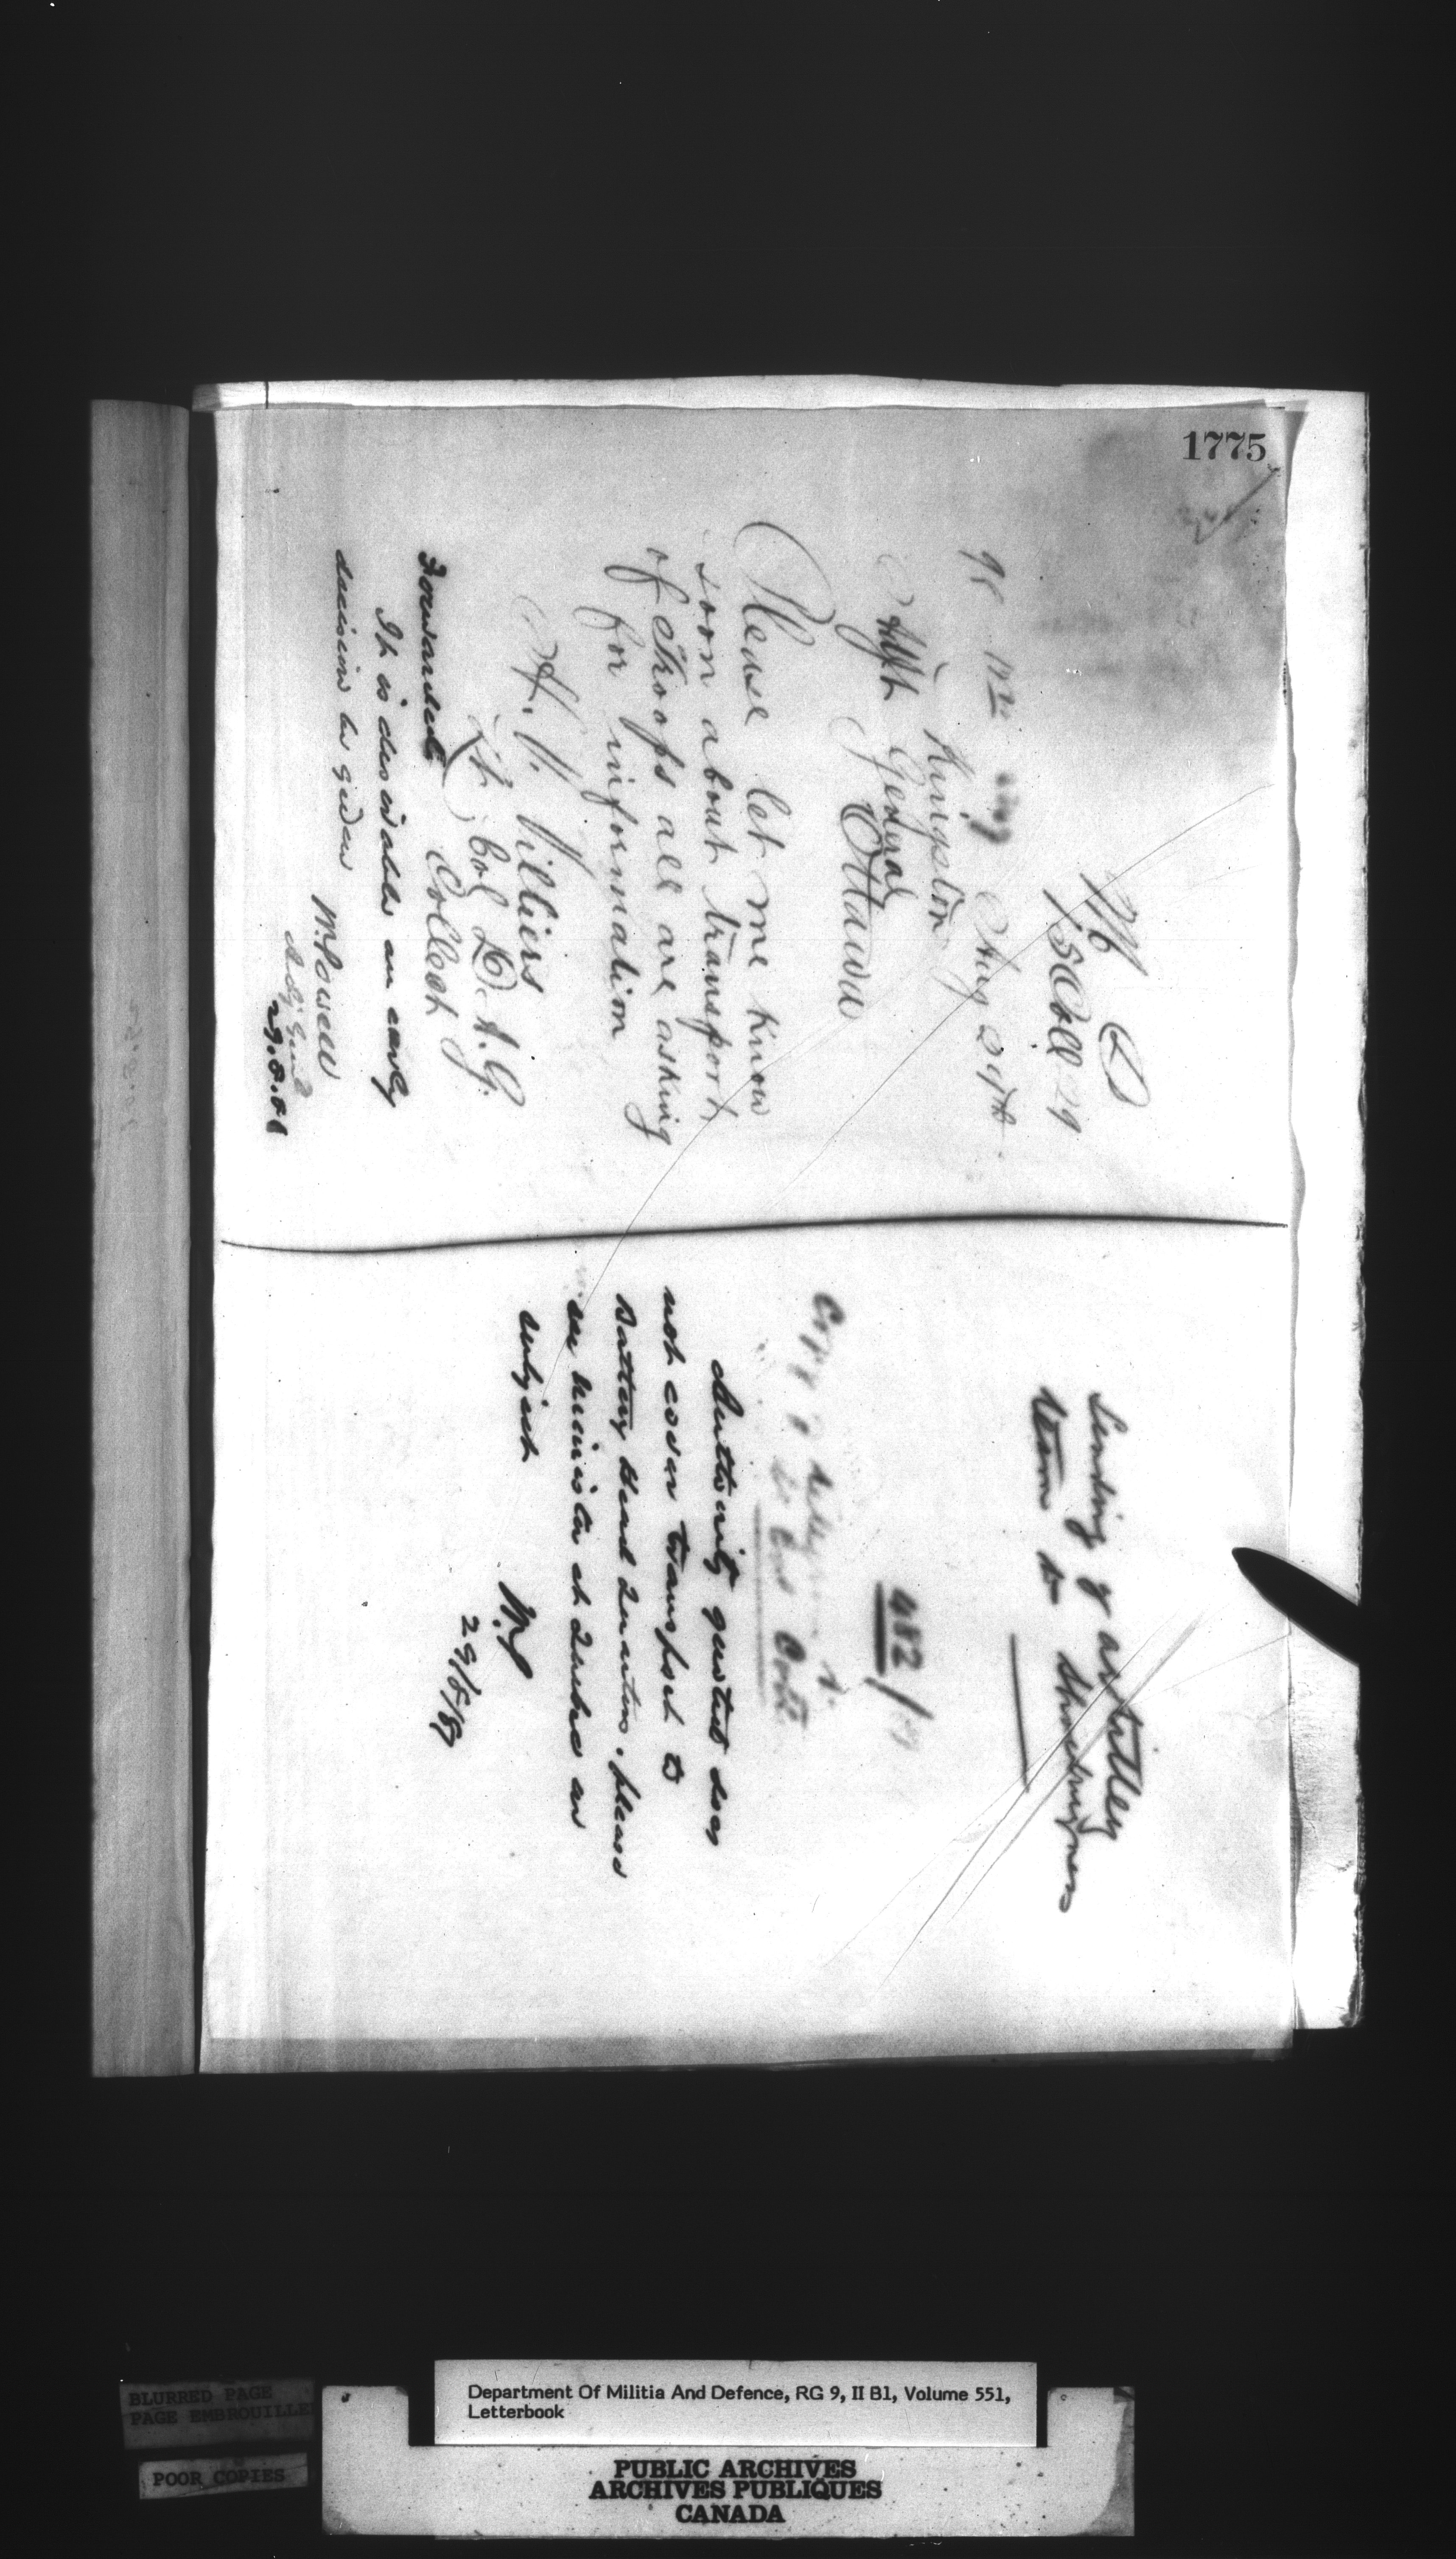 1775
M D
15 Coll 29
Kingston Aug 29th
Adjt General
Ottawa
Please let me know
soon about transport
of troops all are asking
for information
H. V. Villiers
Lt Col D.A.G.
Collect
Forwarded
It is desirable an early
decision be given
W Powell
Adj Genl
29.8.81
Sending of artillery
team to Shoeburyness
482
Authority quoted does
not cover transport to
Battery Head Quarters. please
see minister at Quebec on
subject
W.P
29/8/81
BLURRED PAGE
PAGE EMBROUILLEE
POOR COPIES
Department Of Militia And Defence, RG 9, II B1, Volume 551,
Letterbook
PUBLIC ARCHIVES
ARCHIVES PUBLIQUES
CANADA